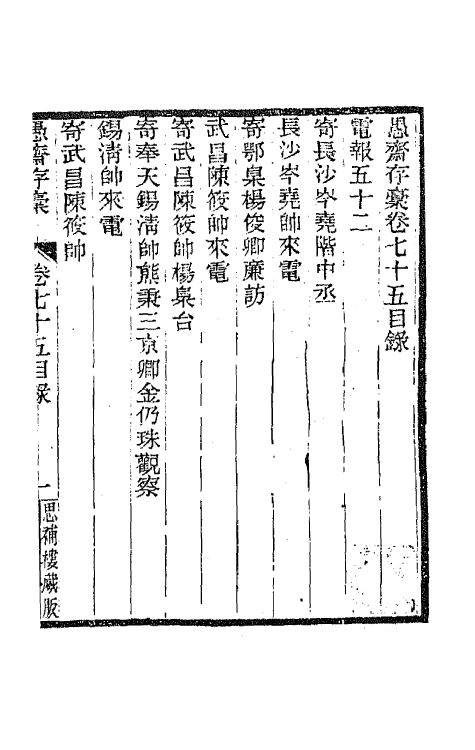 愚齋存稾卷七十五目錄
電報五十二
寄長沙岑堯階中丞
長沙岑堯帥來電
寄鄂臬楊俊卿廉訪
武昌陳筱帥來電
寄武昌陳筱帥楊臬台
寄奉天錫淸帥熊秉三京卿金仍珠觀察
錫淸帥來電
寄武昌陳筱帥
愚齋存稾 卷七十五目錄 一 思補樓藏版